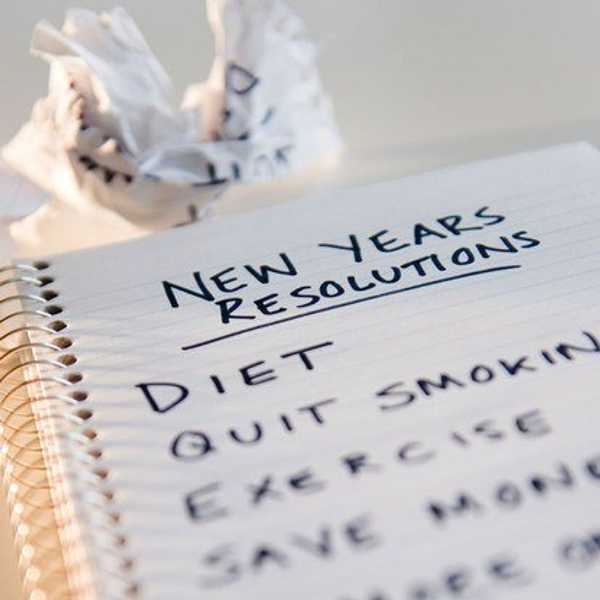 NEW YEARS
RESOLUTIONS
DIET
QUIT SMOKIN
EXERCISE
SAVE MONE
MORE